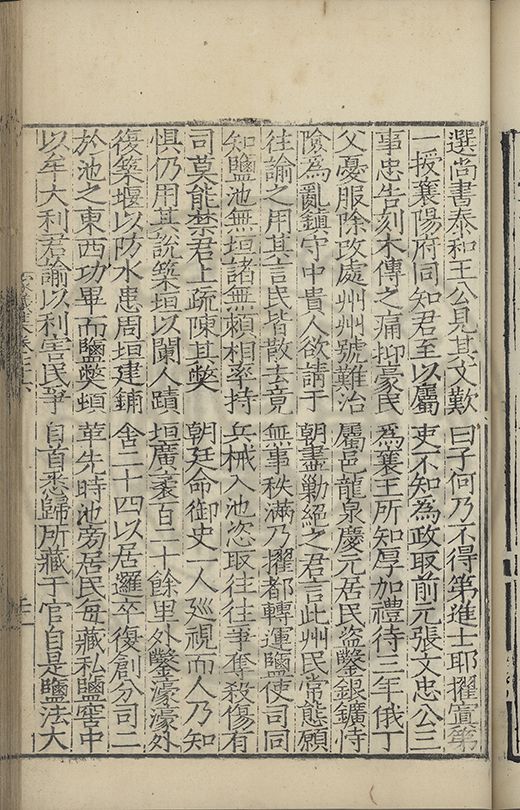 選尚書泰和王公見其文歎曰子何乃不得第進士耶擢寘第
一授襄陽府同知君至以屬吏不知為政取前元張文忠公三
事忠告刻木傳之痛抑豪民為襄王所知厚加禮待三年俄丁
父憂服除改處州州號難治屬邑龍泉慶元居民盜鑿銀鑛恃
險為亂鎮守中貴人欲請于朝盡勦絕之君言此州民常態願
往諭之用其言民皆散去竟無事秩滿乃擢都轉運鹽使司同
知鹽池無垣諸無賴相率持兵械入池恣取往往爭奪殺傷有
司莫能禁君上疏陳其弊朝廷命御史一人廵視而人乃知
懼仍用其說築垣以闌人蹟垣廣袤百二十餘里外鑿濠濠外
復築堰以防水患周垣建鋪舍二十四以居邏卒復創分司二
於池之東西功畢而鹽弊頓革先時池旁居民每藏私鹽窖中
以牟大利君諭以利害民爭自首悉歸所藏于官自是鹽法大